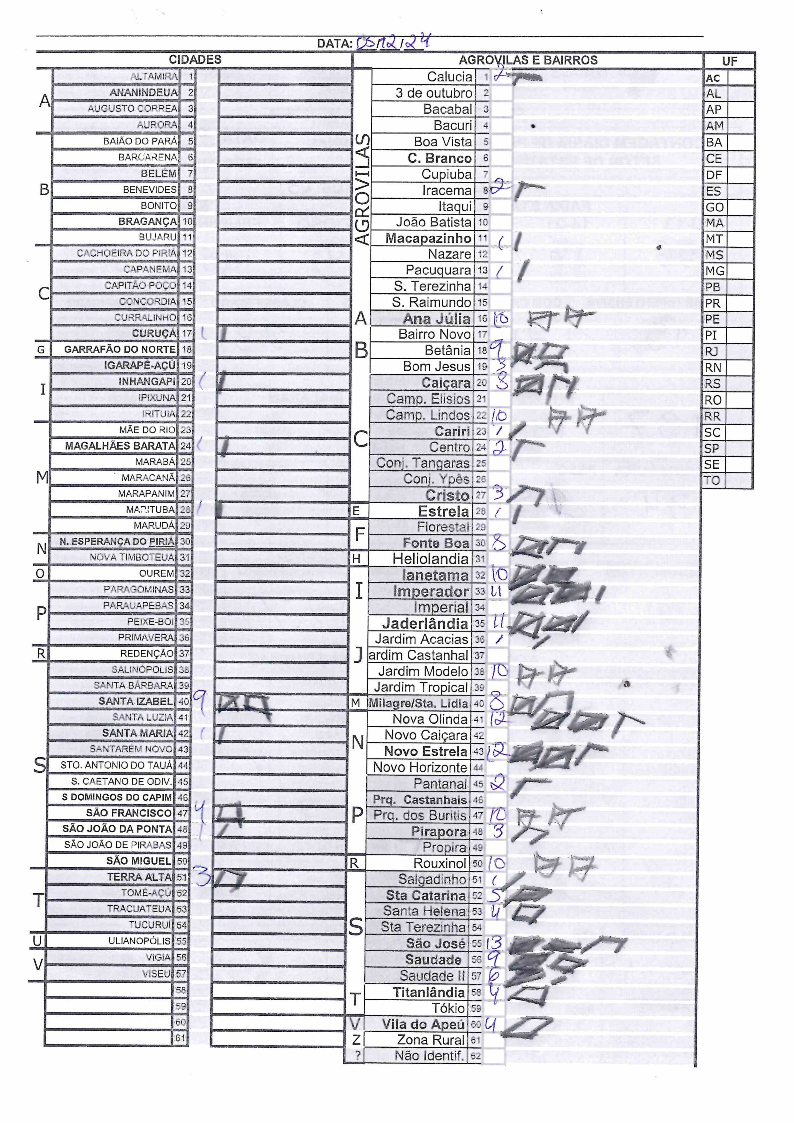 DATA: 05/12/24
CIDADES AGROVILAS E BAIRROS UF
A
ALTAMIRA 1
ANANINDEUA 2
AUGUSTO CORREA 3
AURORA 4
B
BAIÃO DO PARÁ 5
BARCARENA 6
BELÉM 7
BENEVIDES 8
BONITO 9
BRAGANÇA 10
BUJARU 11
C
CACHOEIRA DO PIRIÁ 12
CAPANEMA 13
CAPITÃO POÇO 14
CONCORDIA 15
CURRALINHO 16
CURUÇA 17 1
G
GARRAFÃO DO NORTE 18
I
IGARAPÉ-AÇÚ 19
INHANGAPI 20 1
IPIXUNA 21
IRITUIA 22
M
MÃE DO RIO 23
MAGALHÃES BARATA 24 1
MARABÁ 25
MARACANÃ 26
MARAPANIM 27
MARITUBA 28 1
MARUDÁ 29
N
N. ESPERANÇA DO PIRIA 30
NOVA TIMBOTEUA 31
O
OUREM 32
P
PARAGOMINAS 33
PARAUAPEBAS 34
PEIXE-BOI 35
PRIMAVERA 36
R
REDENÇÃO 37
S
SALINÓPOLIS 38
SANTA BÁRBARA 39
SANTA IZABEL 40 9
SANTA LUZIA 41
SANTA MARIA 42 1
SANTARÉM NOVO 43
STO. ANTONIO DO TAUÁ 44
S. CAETANO DE ODIV. 45
S DOMINGOS DO CAPIM 46
SÃO FRANCISCO 47 4
SÃO JOÃO DA PONTA 48 1
SÃO JOÃO DE PIRABAS 49
SÃO MIGUEL 50
T
TERRA ALTA 51 3
TOMÉ-AÇÚ 52
TRACUATEUA 53
TUCURUI 54
U
ULIANOPÓLIS 55
V
VIGIA 56
VISEU 57
58
59
60
61
AGROVILAS
Calucia 1 2
3 de outubro 2
Bacabal 3
Bacuri 4
Boa Vista 5
C. Branco 6
Cupiuba 7
Iracema 8 2
Itaqui 9
João Batista 10
Macapazinho 11 1
Nazare 12
Pacuquara 13 1
S. Terezinha 14
S. Raimundo 15
A
Ana Júlia 16 10
B
Bairro Novo 17
Betânia 18 9
Bom Jesus 19 3
C
Caiçara 20 8
Camp. Elisios 21
Camp. Lindos 22 10
Cariri 23 1
Centro 24 2
Conj. Tangaras 25
Conj. Ypês 26
Cristo 27 3
E
Estrela 28 1
F
Florestal 29
Fonte Boa 30 8
H
Heliolandia 31
I
Ianetama 32 10
Imperador 33 11
Imperial 34
J
Jaderlândia 35 11
Jardim Acacias 36 1
ardim Castanhal 37
Jardim Modelo 38 10
Jardim Tropical 39
M
Milagre/Sta. Lidia 40 8
N
Nova Olinda 41 12
Novo Caiçara 42
Novo Estrela 43 12
Novo Horizonte 44
P
Pantanal 45 2
Prq. Castanhais 46
Prq. dos Buritis 47 10
Pirapora 48 3
Propira 49
R
Rouxinol 50 10
S
Salgadinho 51 1
Sta Catarina 52 5
Santa Helena 53 4
Sta Terezinha 54
São José 55 13
Saudade 56 9
Saudade II 57 6
T
Titanlândia 58 4
Tókio 59
V
Vila do Apeú 60 4
Z
Zona Rural 61
?
Não Identif. 62
AC
AL
AP
AM
BA
CE
DF
ES
GO
MA
MT
MS
MG
PB
PR
PE
PI
RJ
RN
RS
RO
RR
SC
SP
SE
TO